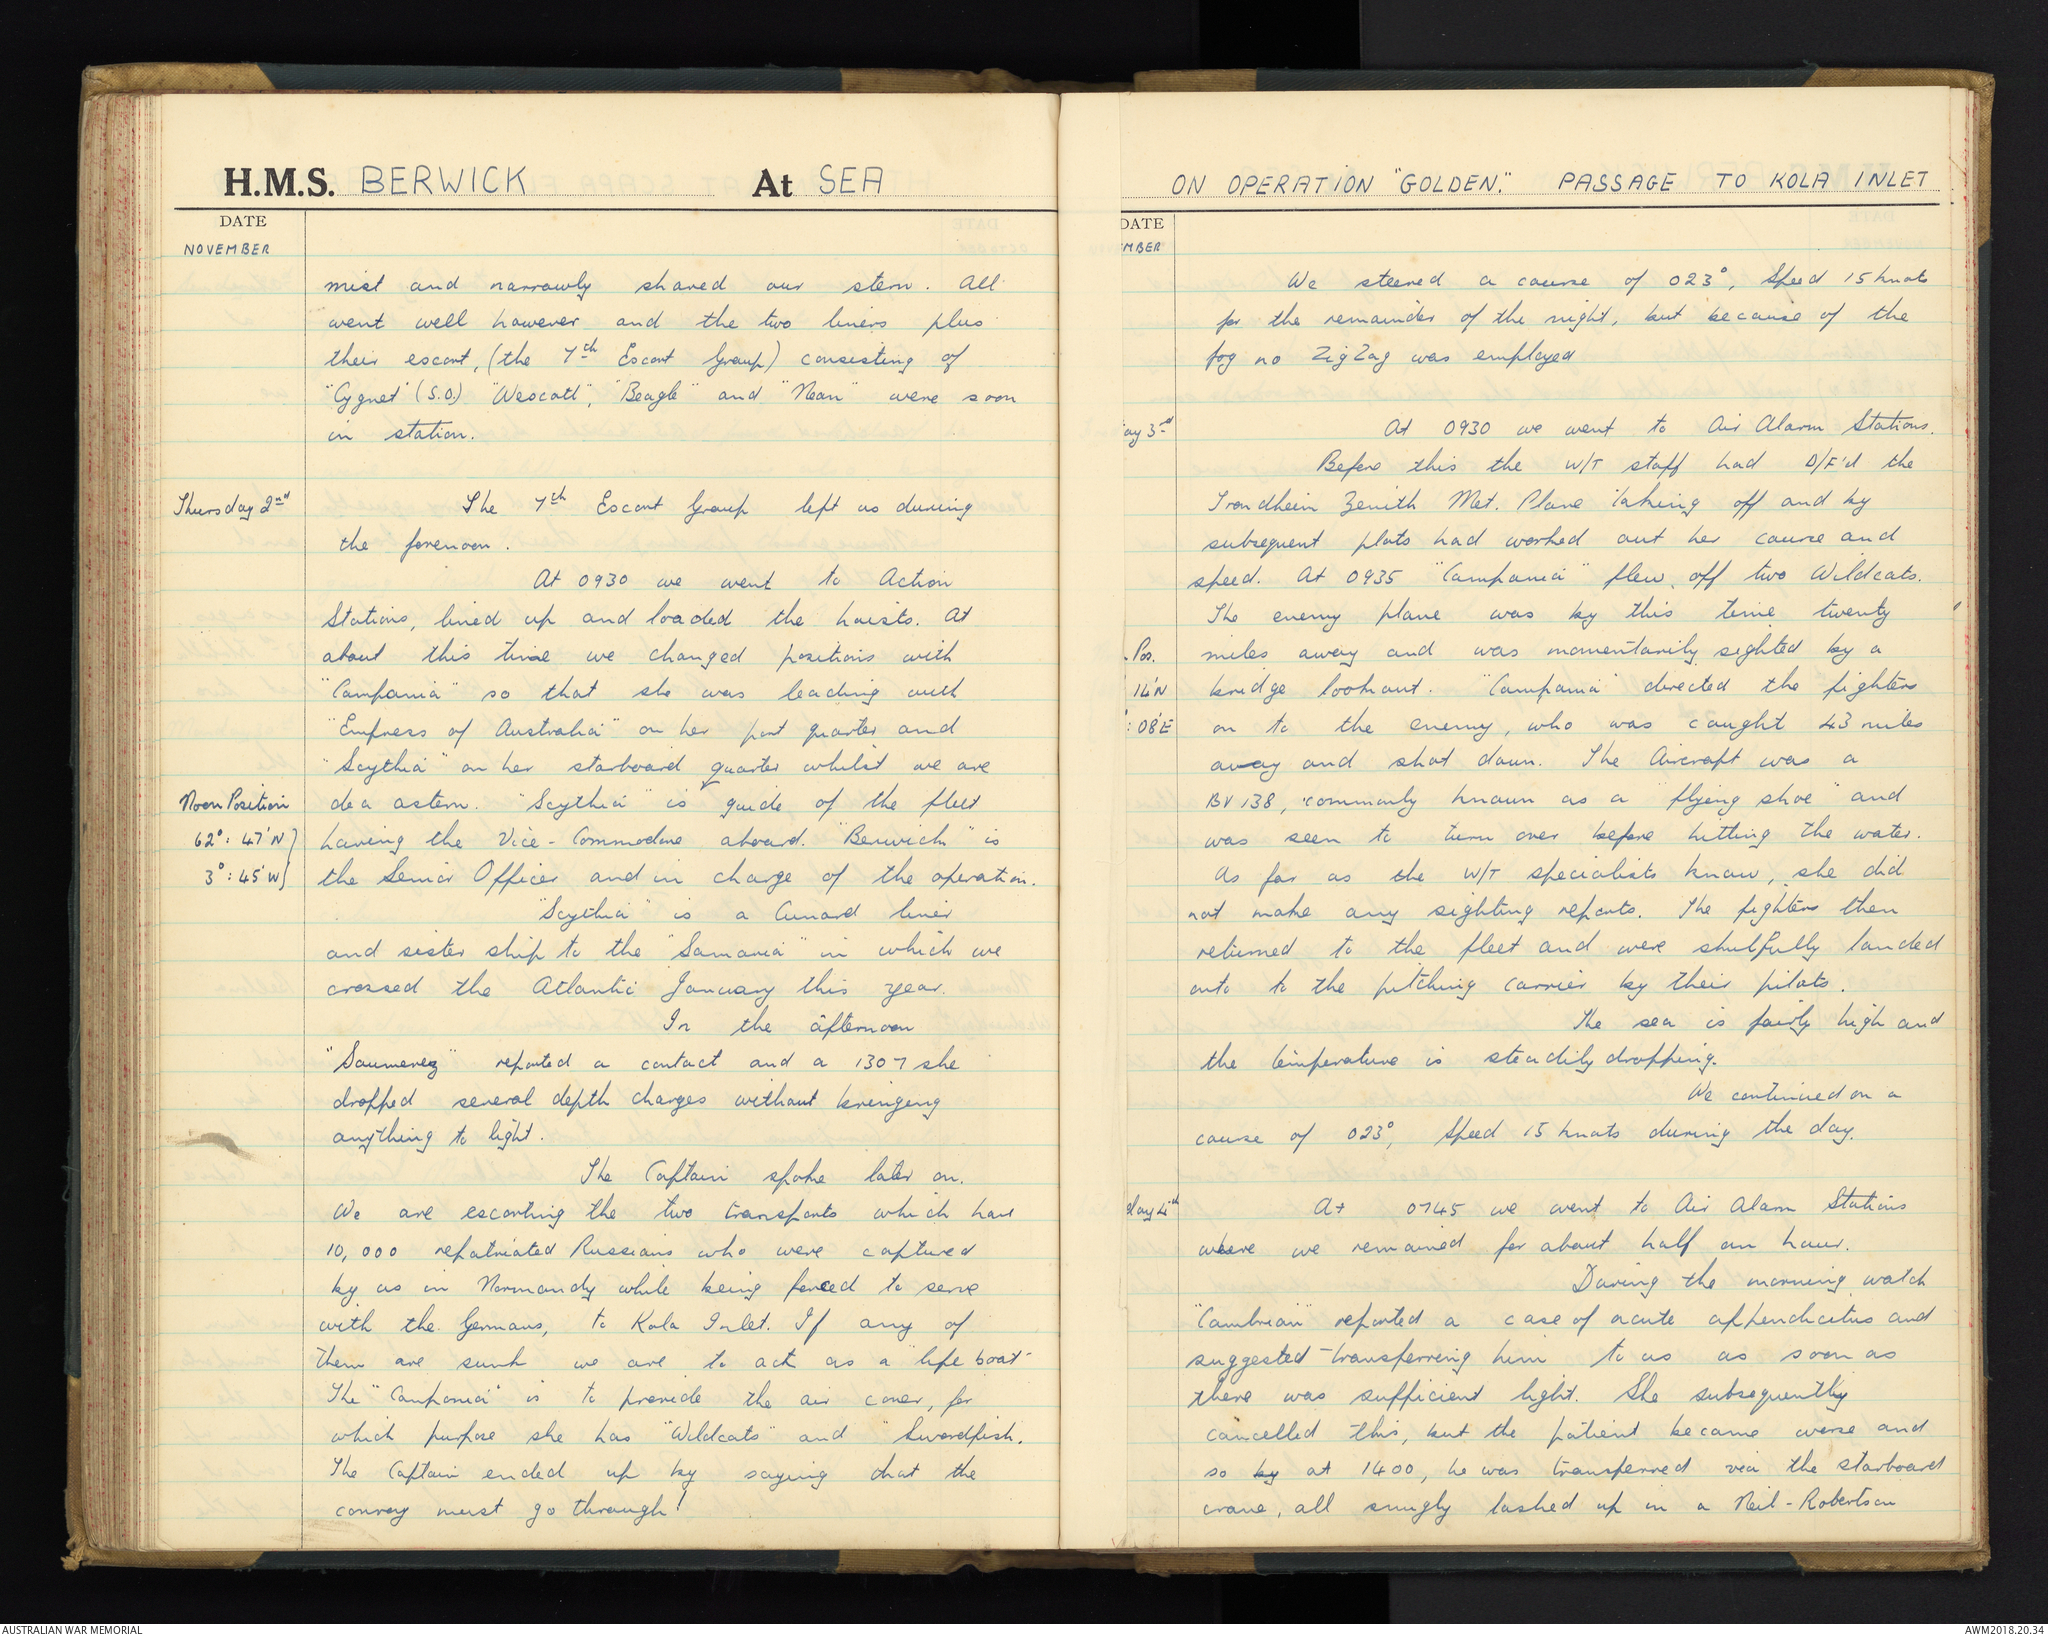 H.M.S. BERWICK At SEA
DATE
NOVEMBER
mist and narrowly shaved our stern. All
went well however and the two liners plus
their escort, (the 7th Escort Group) consisting of
"Cygnet" (S.O.) "Wescott", "Beagle" and "Nean" were soon
in station.
Thursday 2nd
The 7th Escort Group left us during
the forenoon.
At 0930 we went to Action
Stations, lined up and loaded the hoists. At
about this time we changed positions with
"Campania" so that she was leading with
"Empress of Australia" on her port quarter and
"Scythia" on her starboard quarter whilst we are
dea astern. "Scythia" is guide of the fleet
Noon Position
62°: 47'N }
3°: 45'W }
having the Vice-Commodore aboard. "Berwick" is
the Senior Officer and in charge of the operation.
"Scythia" is a Cunard liner
and sister ship to the "Samaria" in which we
crossed the Atlantic January this year.
In the afternoon
"Saumerez" reported a contact and a 1307 she
dropped several depth charges without bringing
anything to light.
The Captain spoke later on.
We are escorting the two transports which have
10,000 repatriated Russians who were captured
by us in Normandy while being forced to serve
with the Germans, to Kola Inlet. If any of
them are sunk we are to act as a "life boat"
The "Campania" is to provide the air cover, for
which purpose she has "Wildcats" and "Swordfish.
The Captain ended up by saying that the
convoy must go through!
ON OPERATION "GOLDEN." PASSAGE TO KOLA INLET
DATE
MBER
We steered a course of 023°, Speed 15 knots
for the remainder of the night, but because of the
fog no ZigZag was employed
ay 3rd
At 0930 we went to Air Alarm Stations.
Before this the W/T staff had D/F'd the
Trondheim Zenith Met. Plane taking off and by
subsequent plots had worked out her course and
speed. At 0935 "Campania" flew off two Wildcats.
The enemy plane was by this time twenty
. Pos.
14'N
: 08'E
miles away and was momentarily sighted by a
bridge lookout. "Campania" directed the fighters
on to the enemy, who was caught 43 miles
away and shot down. The Aircraft was a
BV 138, commonly known as a "flying shoe" and
was seen to turn over before hitting the water.
As far as the W/T specialists know, she did
not make any sighting reports. The fighters then
returned to the fleet and were skilfully landed
onto to the pitching carrier by their pilots.
The sea is fairly high and
the temperature is steadily dropping.
We continued on a
course of 023°, Speed 15 knots during the day.
day 4th
At 0745 we went to Air Alarm Stations
where we remained for about half an hour.
During the morning watch
"Cambrian" reported a case of acute appendicitus and
suggested transferring him to us as soon as
there was sufficient light. She subsequently
cancelled this, but the patient became worse and
so by at 1400, he was transferred via the starboard
crane, all snugly lashed up in a Neil-Robertson
AUSTRALIAN WAR MEMORIAL
AWM2018.20.34